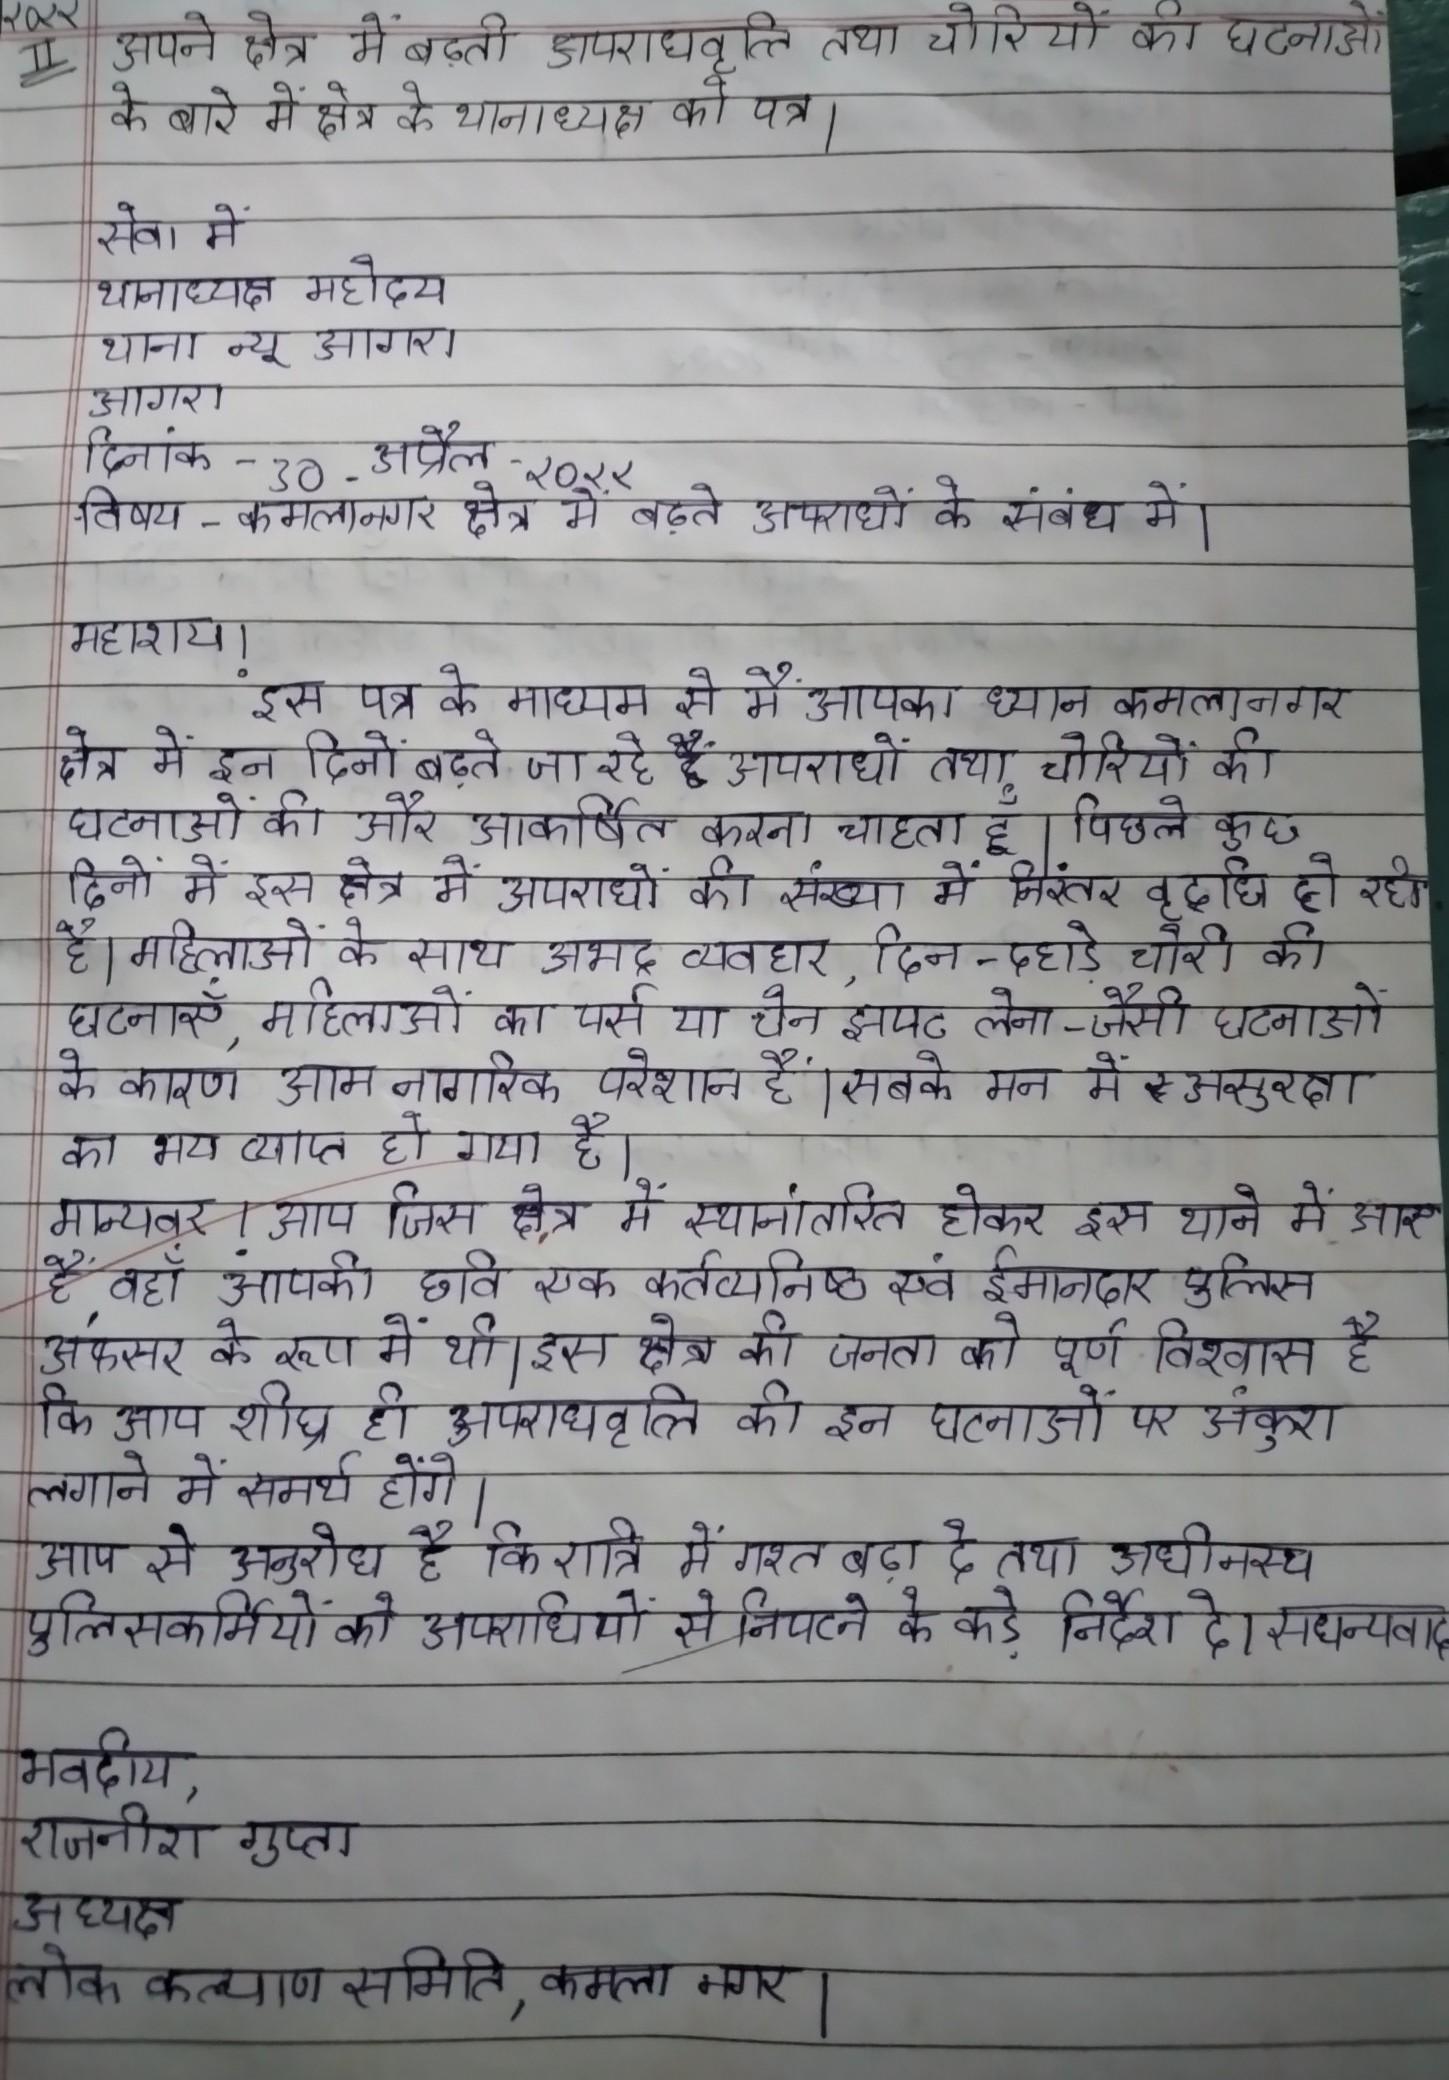 २०२२
II अपने क्षेत्र में बढ़ती अपराधवृत्ति तथा चोरियों की घटनाओं
के बारे में क्षेत्र के थानाध्यक्ष को पत्र।
सेवा में
थानाध्यक्ष महोदय
थाना न्यू आगरा
आगरा
दिनांक - 30 - अप्रैल - २०२२
विषय - कमलानगर क्षेत्र में बढ़ते अपराधों के संबंध में।
महाशय!
इस पत्र के माध्यम से मैं आपका ध्यान कमलानगर
क्षेत्र में इन दिनों बढ़ते जा रहे हैं अपराधों तथा चोरियों की
घटनाओं की और आकर्षित करना चाहता हूँ। पिछले कुछ
दिनों में इस क्षेत्र में अपराधों की संख्या में निरंतर वृद्धि हो रही
है। महिलाओं के साथ अभद्र व्यवहार, दिन-दहाड़े चोरी की
घटनाएँ, महिलाओं का पर्स या चेन झपट लेना-जैसी घटनाओं
के कारण आम नागरिक परेशान हैं। सबके मन में असुरक्षा
का भय व्याप्त हो गया है।
मान्यवर! आप जिस क्षेत्र में स्थानांतरित होकर इस थाने में आए
हैं, वहाँ आपकी छवि एक कर्तव्यनिष्ठ एवं ईमानदार पुलिस
अफसर के रूप में थी। इस क्षेत्र की जनता को पूर्ण विश्वास है
कि आप शीघ्र ही अपराधवृत्ति की इन घटनाओं पर अंकुश
लगाने में समर्थ होंगे।
आप से अनुरोध है कि रात्रि में गश्त बढ़ा दे तथा अधीनस्थ
पुलिसकर्मियों को अपराधियों से निपटने के कड़े निर्देश दे। सधन्यवाद
भवदीय,
राजनीश गुप्ता
अध्यक्ष
लोक कल्याण समिति, कमला नगर।